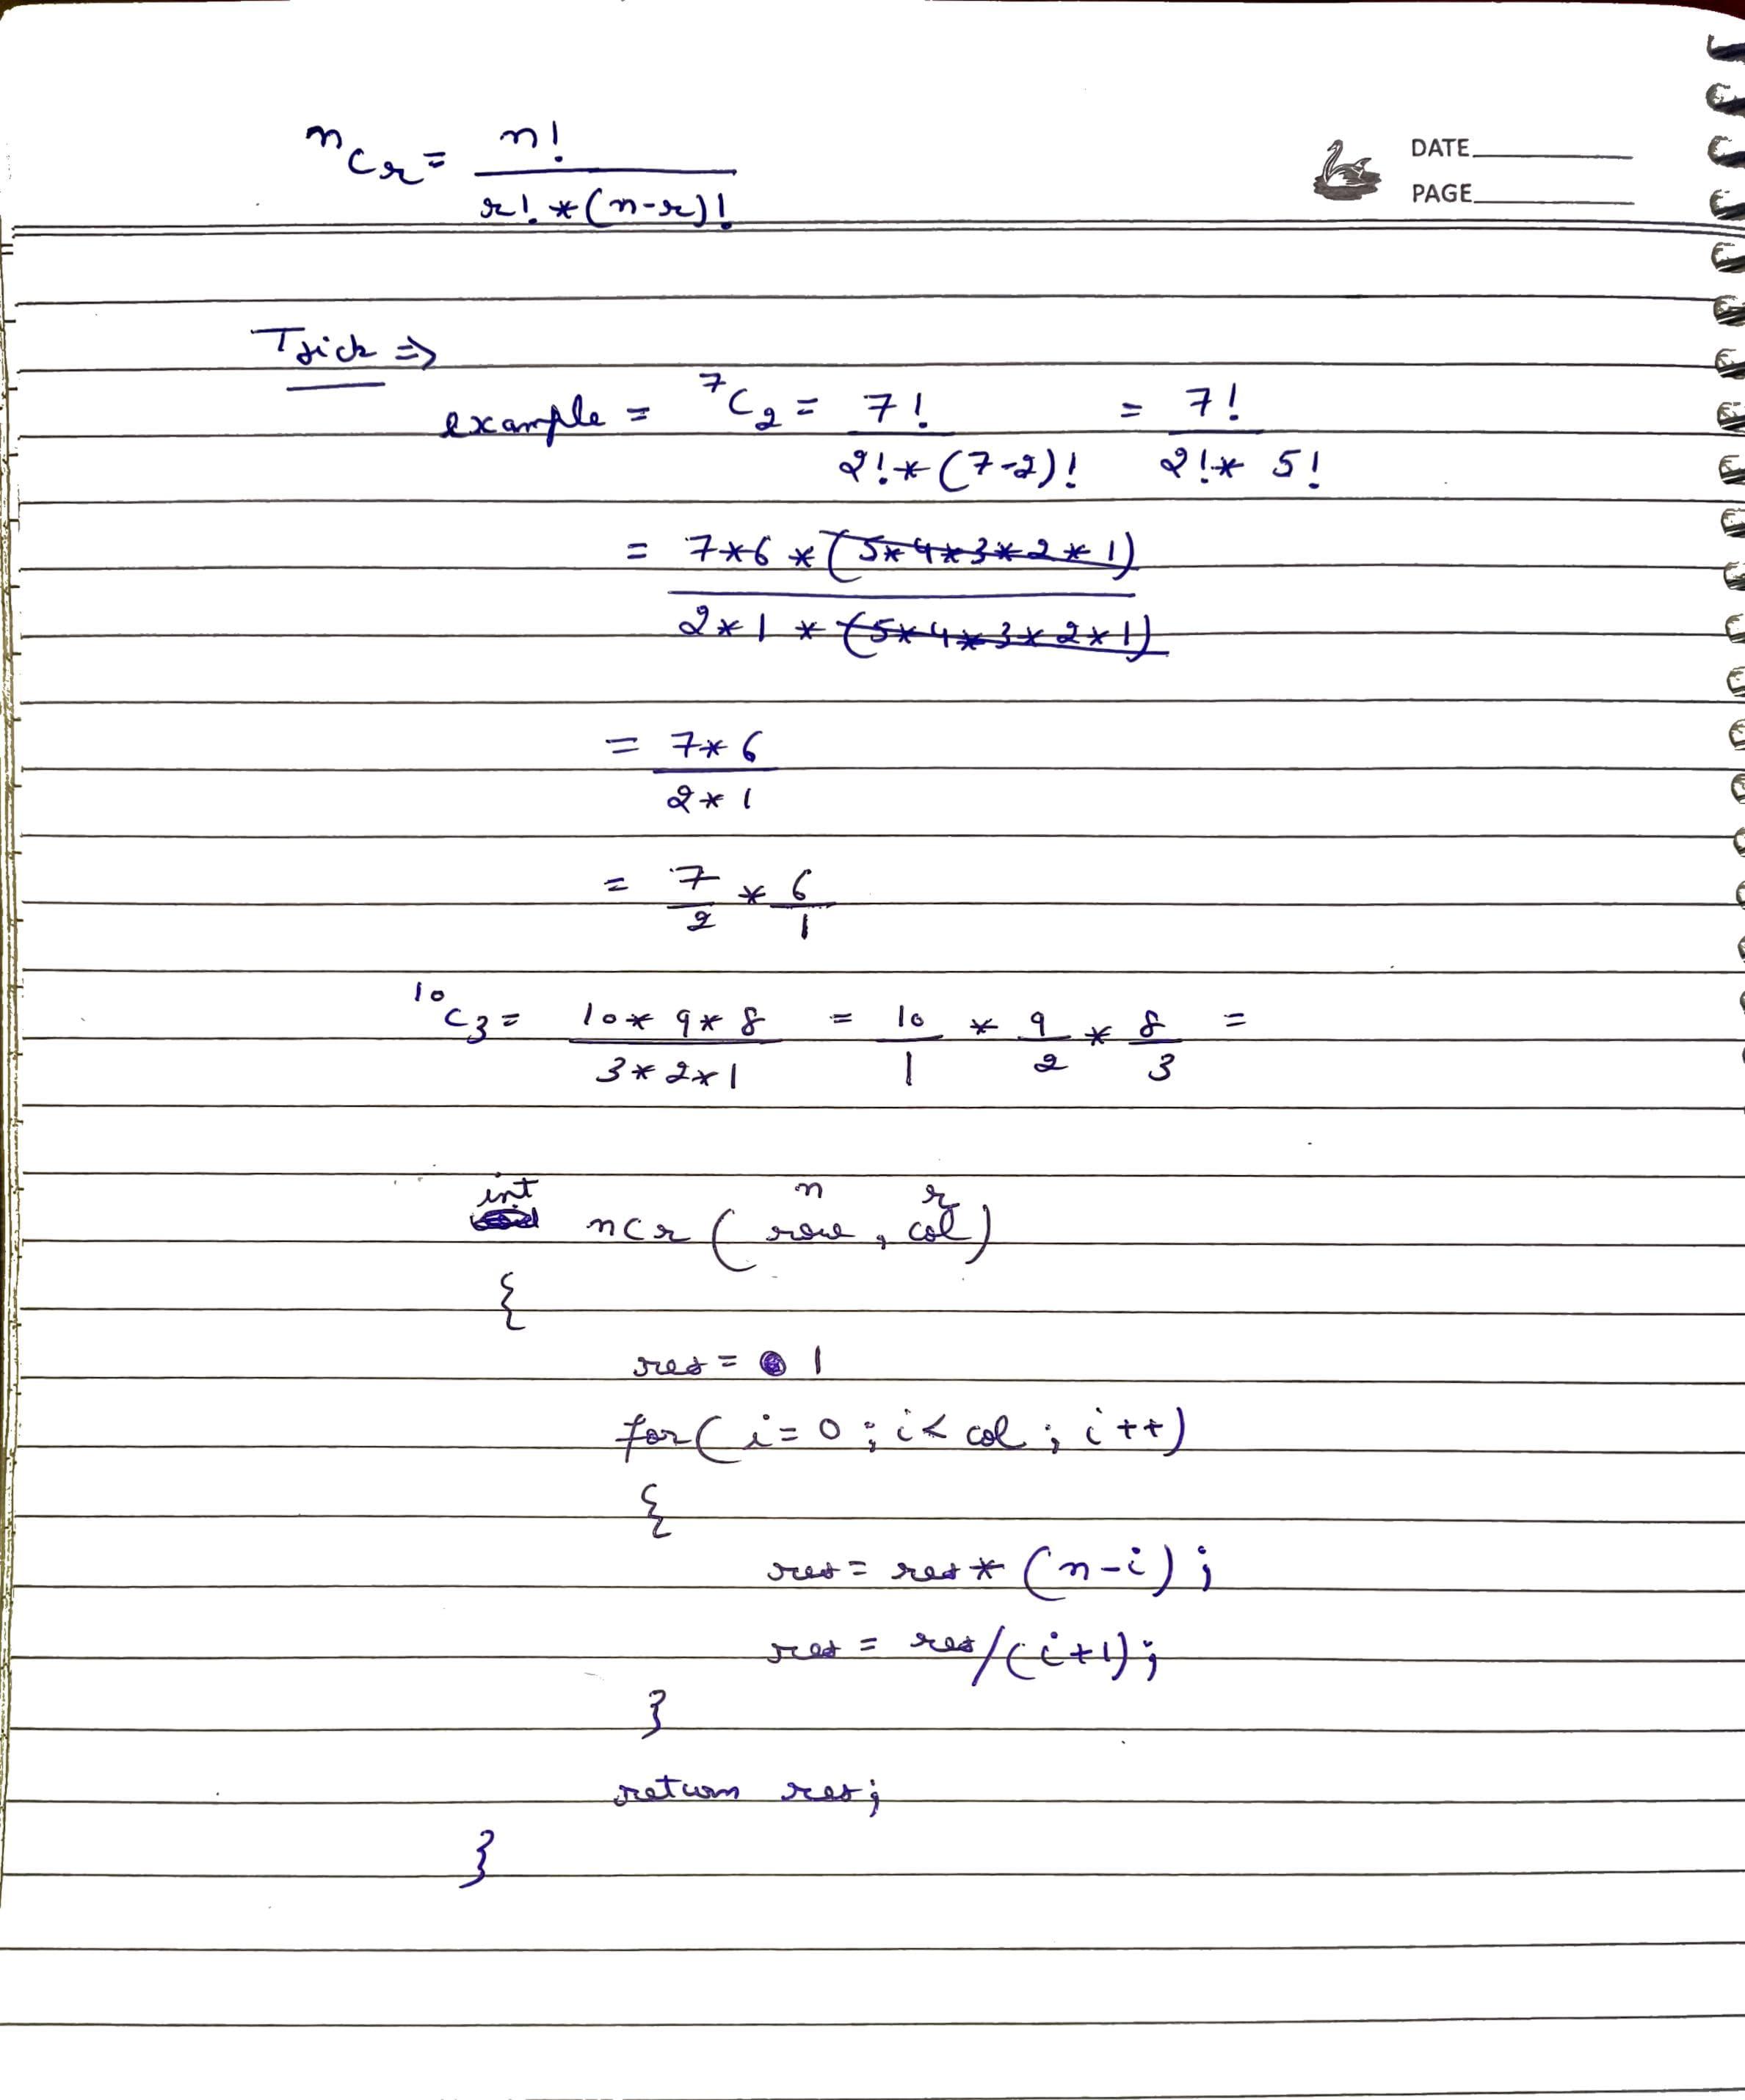 ⁿCᵣ = n! / r! * (n-r)!
DATE
PAGE
Trick ⇒
example = ⁷C₂ = 7! / 2! * (7-2)! = 7! / 2! * 5!
= 7*6 * (5*4*3*2*1) / 2*1 * (5*4*3*2*1)
= 7*6 / 2*1
= 7/2 * 6/1
¹⁰C₃ = 10*9*8 / 3*2*1 = 10/1 * 9/2 * 8/3 =
n r
int ncr (row, col)
{
res = 1
for( i=0 ; i< col ; i++)
{
res = res * (n-i) ;
res = res/(i+1);
}
return res;
}